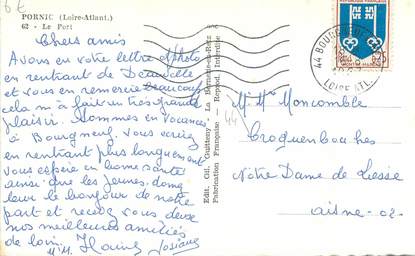 6 €
PORNIC (Loire-Atlant.)
62 - Le Port
Chers amis
Avons eu votre lettre & photo
en rentrant de Deauville
et vous en remercie beaucoup
cela m'a fait un très grand
plaisir. Sommes en vacances
à Bourgneuf. Vous écrirez
en rentrant plus longuement
Vous espère en bonne santé
ainsi que les jeunes, donnez
leur le bonjour de notre
part et recevez vous deux
nos meilleures amitiés
de loin.
Josiane
Edit. Gil. La Bernerie-en-Retz
Fabrication Française - Reprod. Interdite
44 BOURGNEUF
LOIRE ATL.
44
M. Mme Moncomble
Croquenboches
Notre Dame de Liesse
Aisne - 02 -